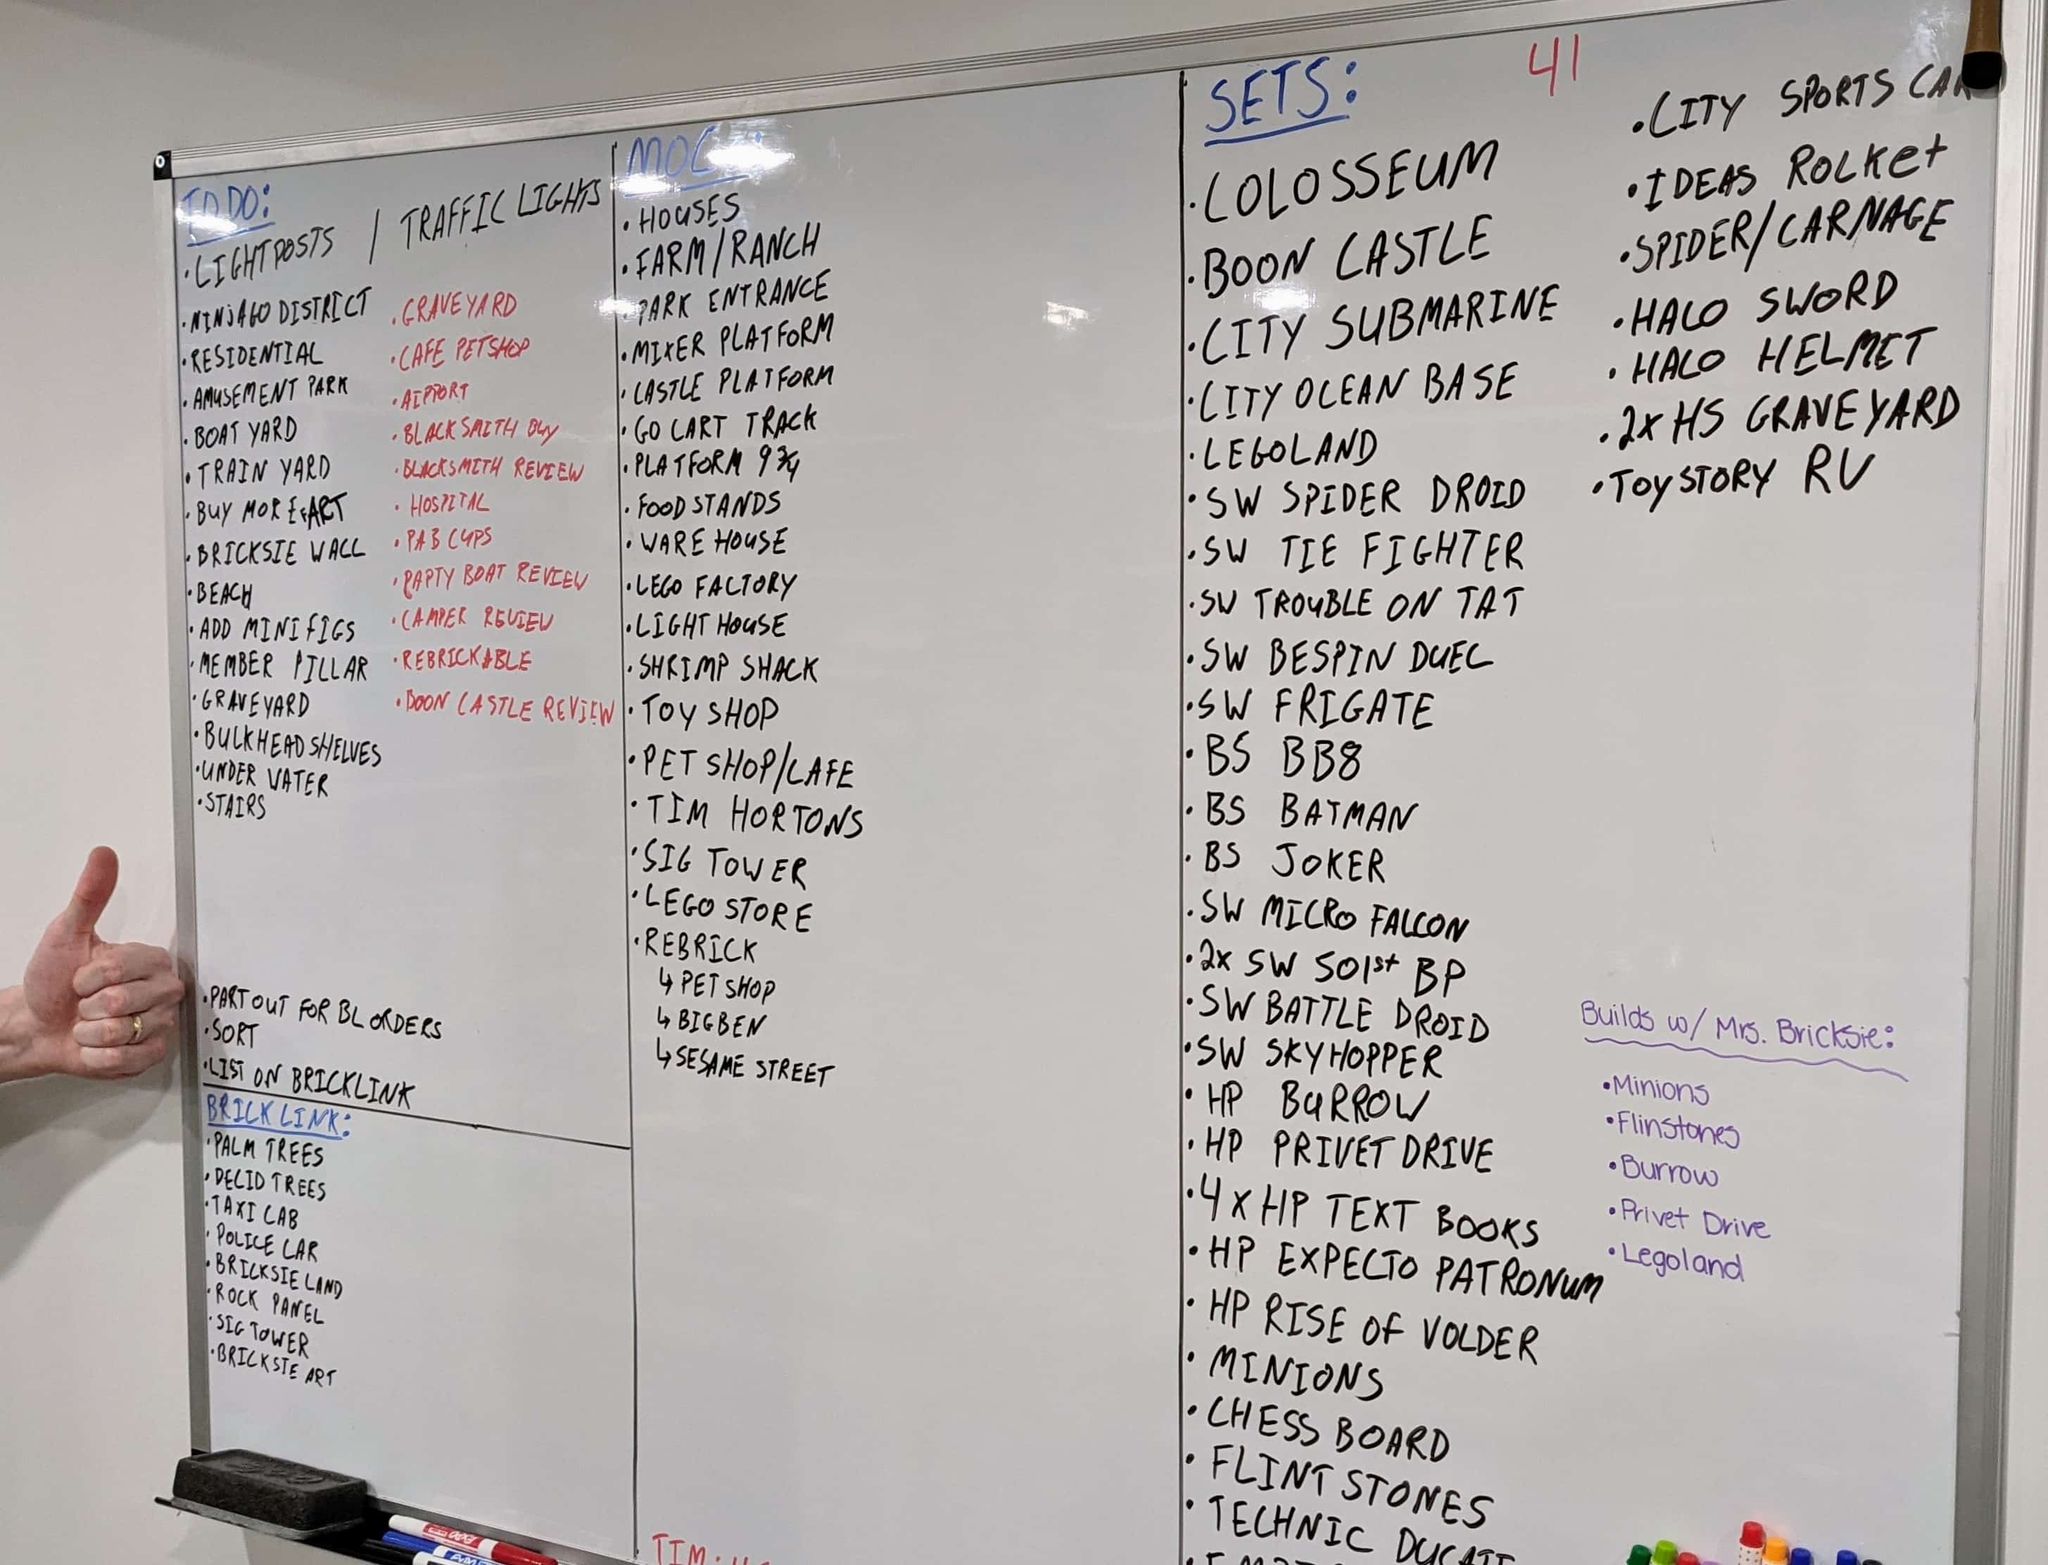 TO DO:
• LIGHTPOSTS / TRAFFIC LIGHTS
• NINJAGO DISTRICT
• RESIDENTIAL
• AMUSEMENT PARK
• BOAT YARD
• TRAIN YARD
• BUY MORE ART
• BRICKSIE WALL
• BEACH
• ADD MINIFIGS
• MEMBER PILLAR
• GRAVEYARD
• BULKHEAD SHELVES
• UNDER WATER
• STAIRS
• GRAVEYARD
• CAFE PETSHOP
• AIPTORT
• BLACKSMITH BUY
• BLACKSMITH REVIEW
• HOSPITAL
• PAB CUPS
• PAPTY BOAT REVIEW
• CAMPER REVIEW
• REBRICKABLE
• BOON CASTLE REVIEW
• PART OUT FOR BL ORDERS
• SORT
• LIST ON BRICKLINK
BRICKLINK:
• PALM TREES
• DECID TREES
• TAXI CAB
• POLICE CAR
• BRICKSIE LAND
• ROCK PANEL
• SIG TOWER
• BRICKSIE ART
• HOUSES
• FARM/RANCH
PARK ENTRANCE
• MIXER PLATFORM
• CASTLE PLATFORM
• GO CART TRACK
• PLATFORM 9¾
• FOOD STANDS
• WARE HOUSE
• LEGO FACTORY
• LIGHT HOUSE
• SHRIMP SHACK
• TOY SHOP
• PET SHOP/CAFE
• TIM HORTONS
• SIG TOWER
• LEGO STORE
• REBRICK
↳ PET SHOP
↳ BIG BEN
↳ SESAME STREET
SETS: 41
• COLOSSEUM
• BOON CASTLE
• CITY SUBMARINE
• CITY OCEAN BASE
• LEGOLAND
• SW SPIDER DROID
• SW TIE FIGHTER
• SW TROUBLE ON TAT
• SW BESPIN DUEL
• SW FRIGATE
• BS BB8
• BS BATMAN
• BS JOKER
• SW MICRO FALCON
• 2x SW 501st BP
• SW BATTLE DROID
• SW SKYHOPPER
• HP BURROW
• HP PRIVET DRIVE
• 4x HP TEXT BOOKS
• HP EXPECTO PATRONUM
• HP RISE OF VOLDER
• MINIONS
• CHESS BOARD
• FLINTSTONES
• TECHNIC DUCATI
• CITY SPORTS CAR
• IDEAS ROCKet
• SPIDER/CARNAGE
• HALO SWORD
• HALO HELMET
• 2x HS GRAVEYARD
• TOYSTORY RV
Builds w/ Mrs. Bricksie:
• Minions
• Flinstones
• Burrow
• Privet Drive
• Legoland